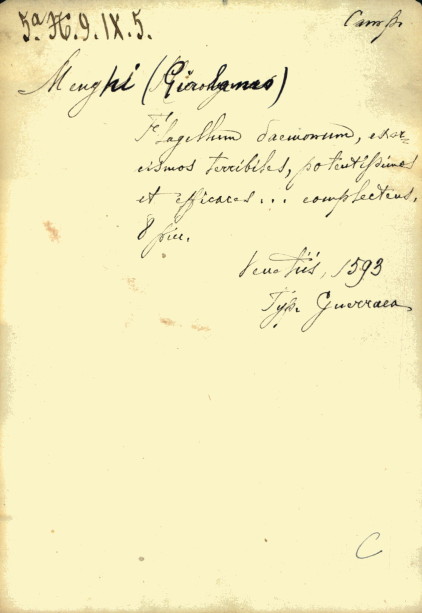 5ª H. 9. IX. 5.
Camp.
Menghi (Girolamo)
Flagellum daemonum, exor-
cismos terribiles, potentissimos
et efficaces... complectens.
8 picc.
Venetiis, 1593
Typ. Guerraea
C